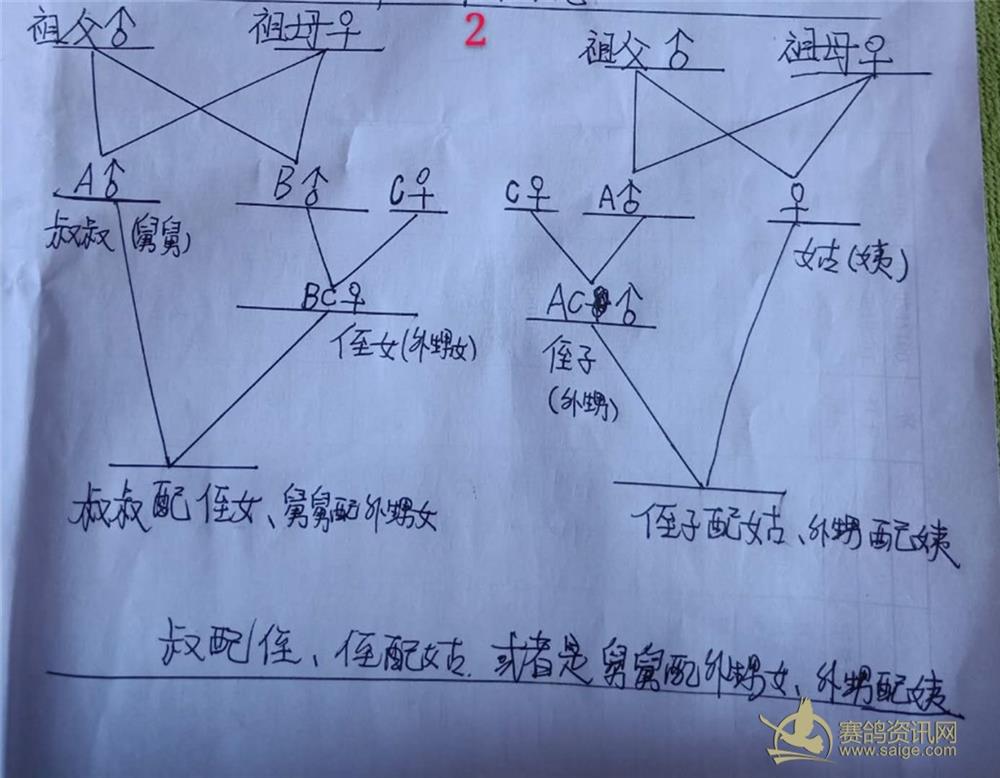 2
祖父♂ 祖母♀ 祖父♂ 祖母♀
A♂ B♂ C♀ C♀ A♂ ♀
叔叔(舅舅) 姑(姨)
BC♀ AC♂
侄女(外甥女) 侄子
(外甥)
叔叔配侄女、舅舅配外甥女 侄子配姑、外甥配姨
叔配侄、侄配姑.或者是舅舅配外甥女、外甥配姨
赛鸽资讯网
www.saige.com